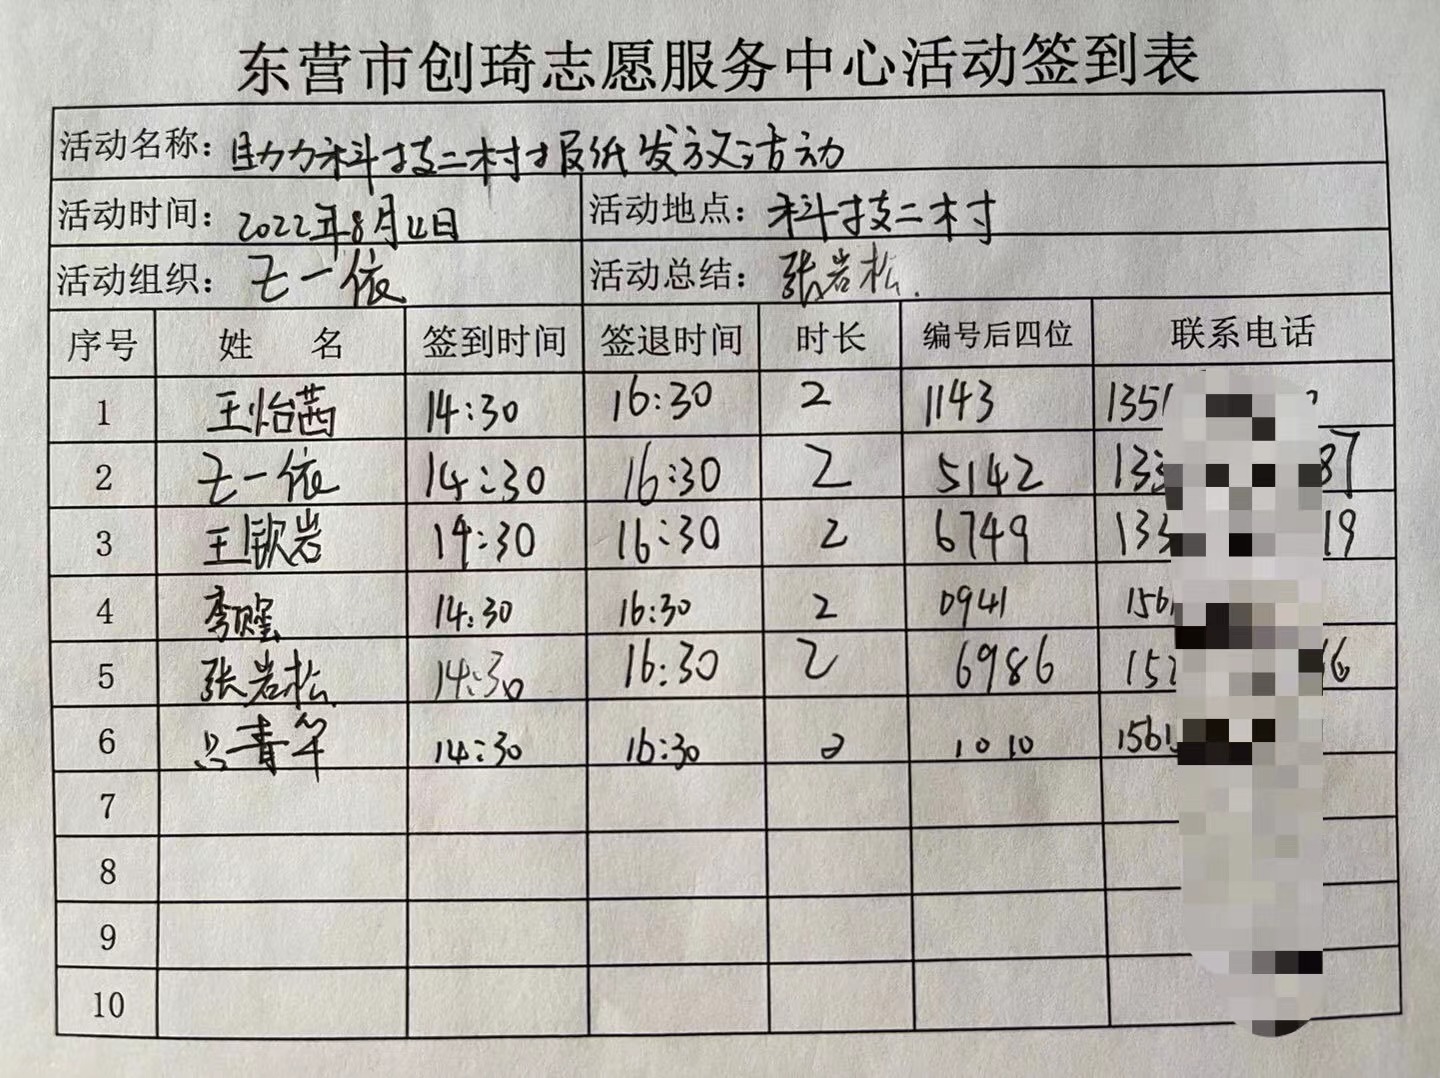 东营市创琦志愿服务中心活动签到表
活动名称: 助力科技二村报纸发放活动
活动时间: 2022年8月11日 活动地点: 科技二村
活动组织: 王一依 活动总结: 张岩松.
序号 姓 名 签到时间 签退时间 时长 编号后四位 联系电话
1 王怡茜 14:30 16:30 2 1143 135
2 王一依 14:30 16:30 2 5142 133 87
3 王钦岩 14:30 16:30 2 6749 133 19
4 李 14:30 16:30 2 0941 156
5 张岩松 14:30 16:30 2 6986 152 6
6 14:30 16:30 2 1010 1561
7
8
9
10